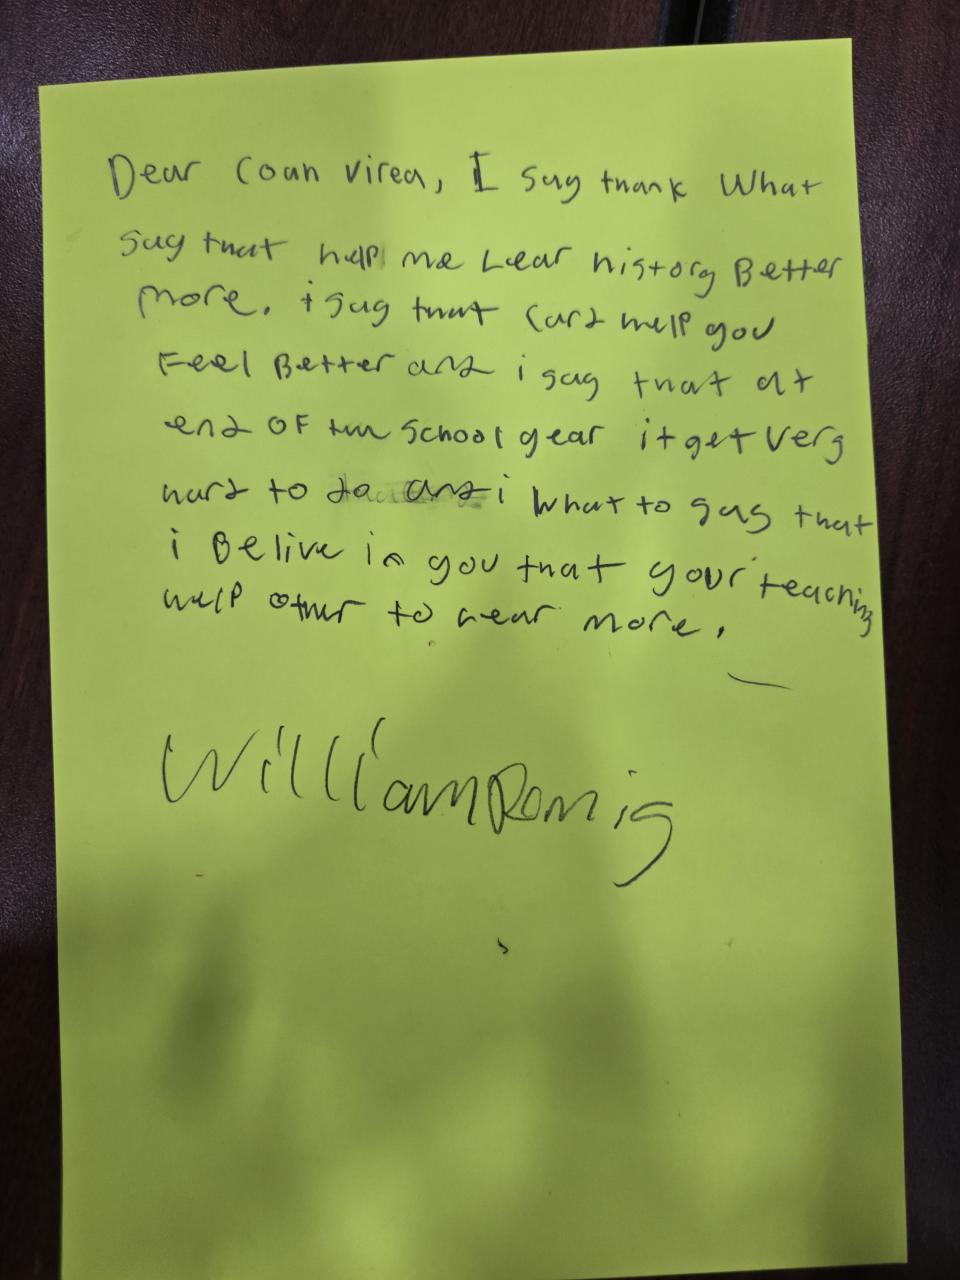 Dear Coah Virea, I say thank What
say that help me Lear history Better
more. i say that Card help you
Feel Better and i say that at
end OF the school year it get very
hard to do and i What to say that
i Belive in you that your teaching
help other to Lear more.
William Romig